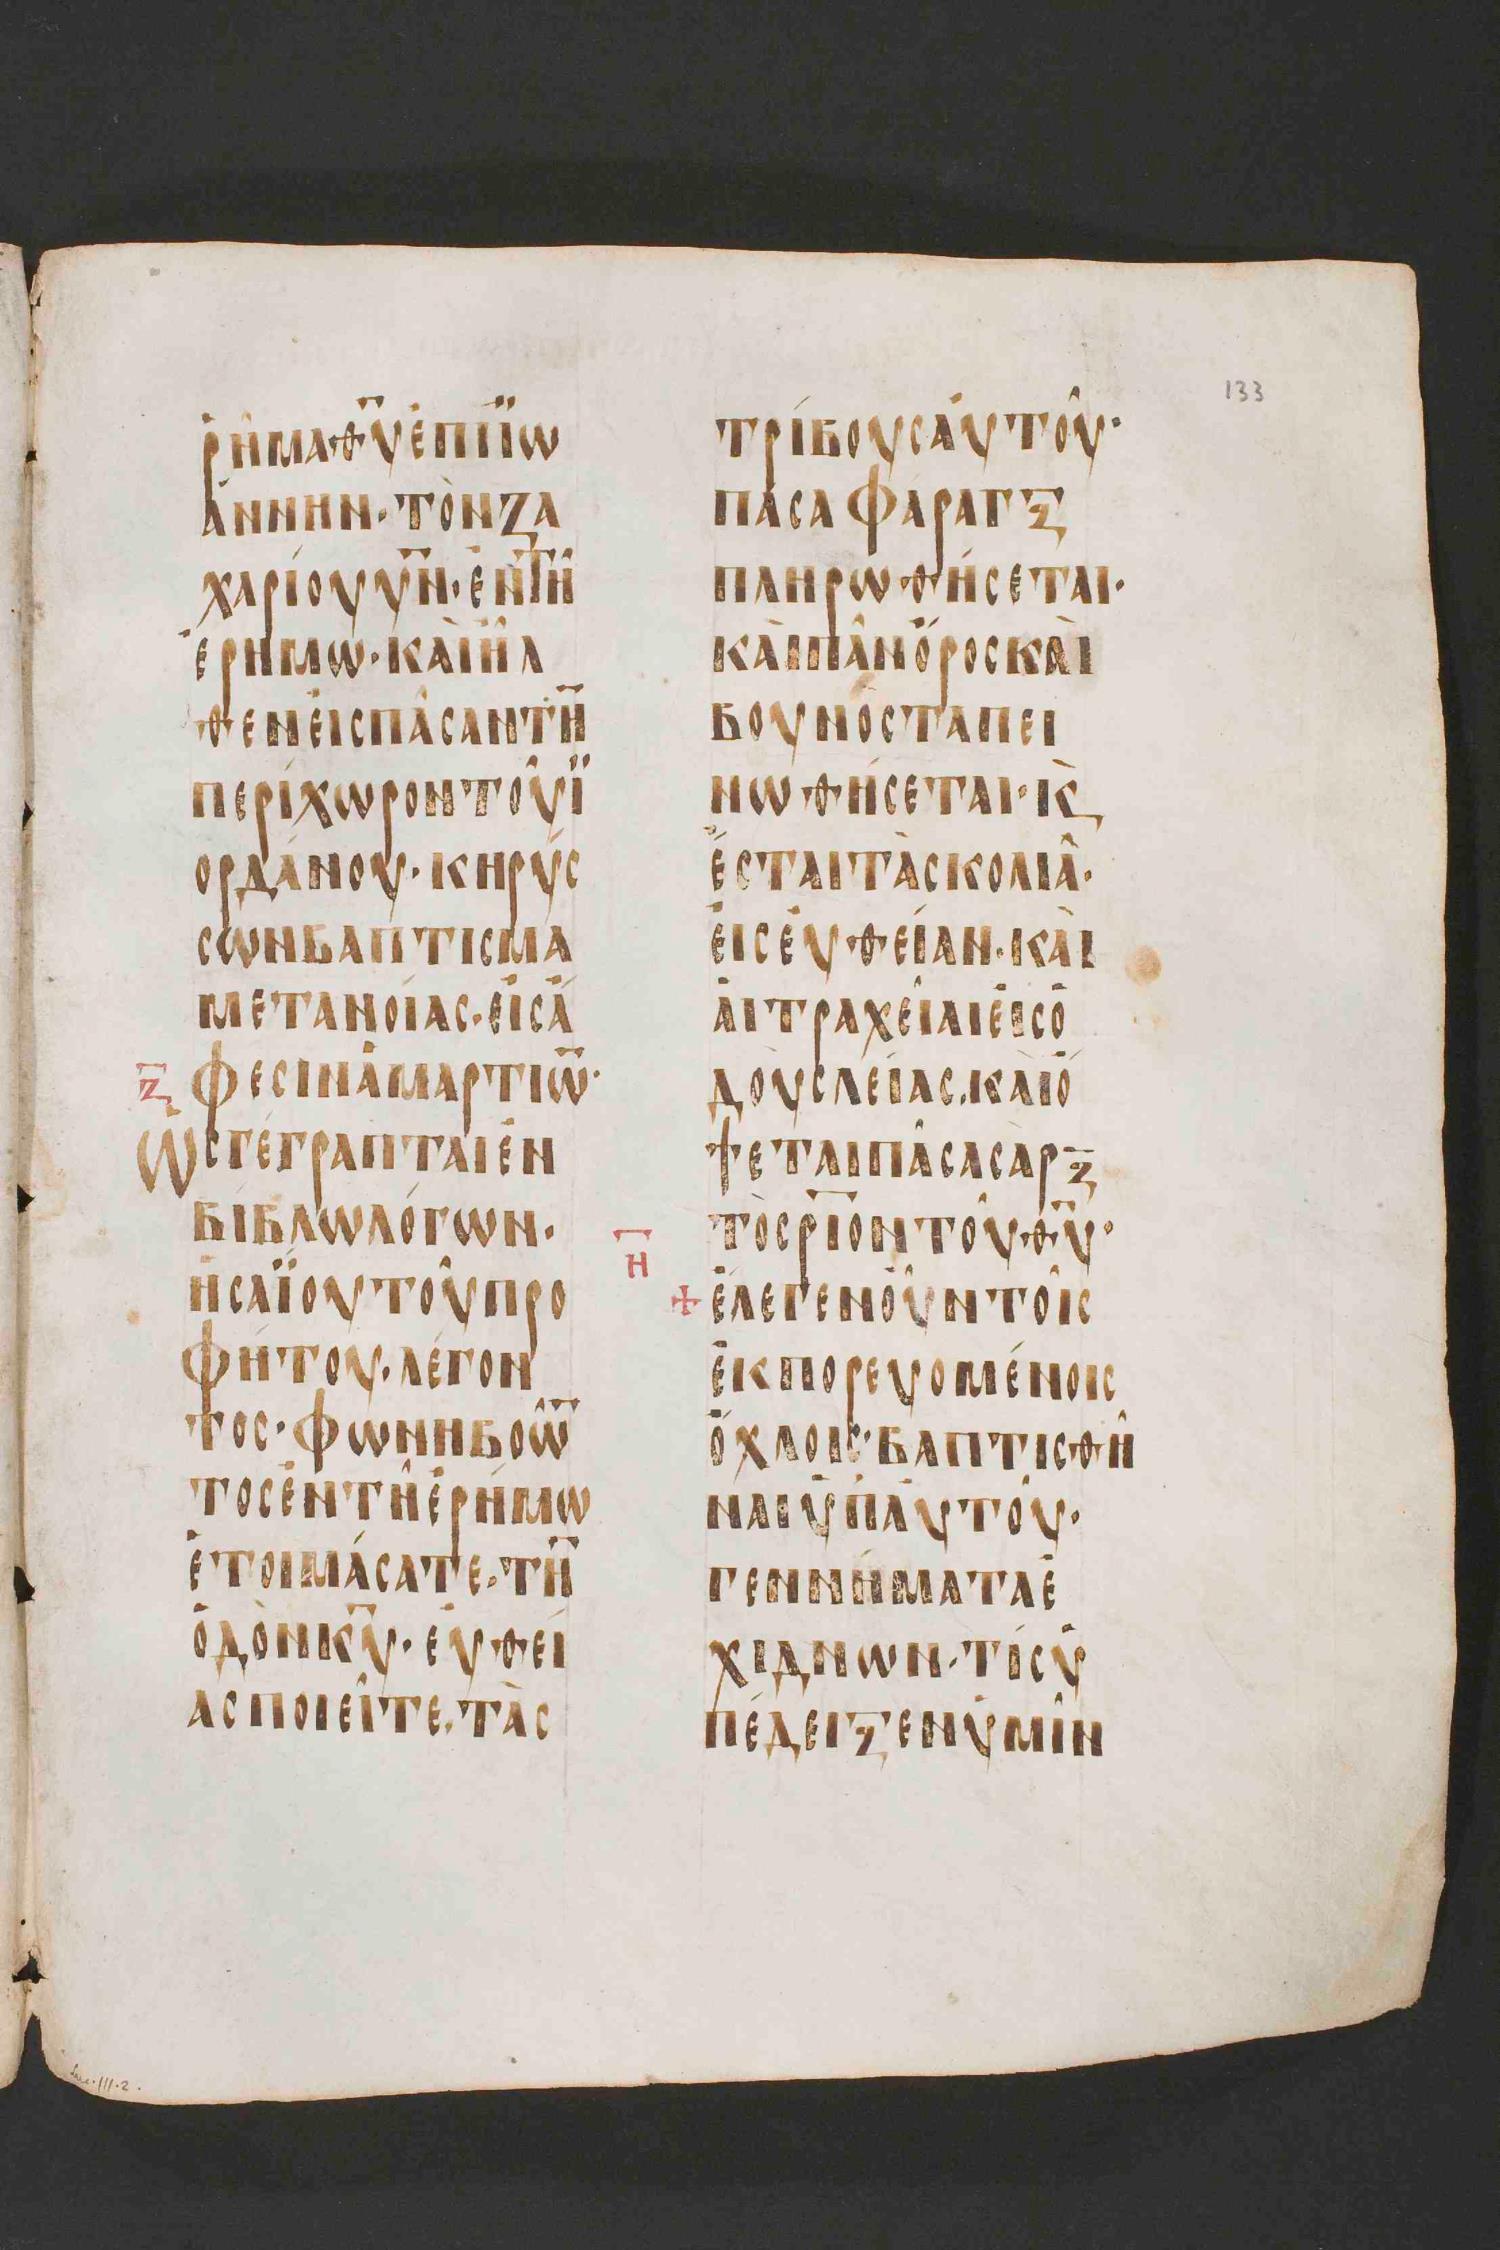 133
ῥῆμα θ̅υ̅ ἐπὶ ϊω
άννην· τὸν ζα
χαρίου υ̅ν̅· ἐν τῆ
ἐρήμω· καὶ ἦλ
θεν εἰς πᾶσαν τη̅
περίχωρον τοῦ ϊ
ορδάνου· κηρύσ
σων βαπτισμα
μετανοίας· εἰς ἄ
ζ̅
φεσιν ἁμαρτιω̅·
Ὡς γέγραπται ἐν
βίβλω λόγων·
ἡσαΐου τοῦ προ
φήτου· λέγον
τος· φωνη βοῶ̅
τος ἐν τῆ ἐρήμω
ἑτοιμάσατε· τη̅
ὁδὸν κ̅υ̅· εὐθεί
ας ποιεῖτε· τὰς
τρίβους αὐτοῦ·
πᾶσα φάραγξ
πληρωθήσεται·
καὶ πᾶν ὄρος καὶ
βουνὸς ταπει
νωθήσεται· κ̀
ἔσται τὰ σκολιᾶ·
εἰς εὐθείαν· καὶ
αἱ τραχεῖαι εἰς ὁ
δοὺς λείας· καὶ ὄ
ψεται πᾶσα σὰρξ
τὸ σ̅ρ̅ι̅ον τοῦ θ̅υ̅·
η̅
+ ἔλεγεν οὖν τοῖς
ἐκπορευομένοις
ὄχλοις· βαπτισθῆ
ναι ὑπ' αὐτοῦ·
γεννήματα ἐ
χιδνων· τίς ὑ
πέδειξεν ὑμῖν
Luc. III. 2.